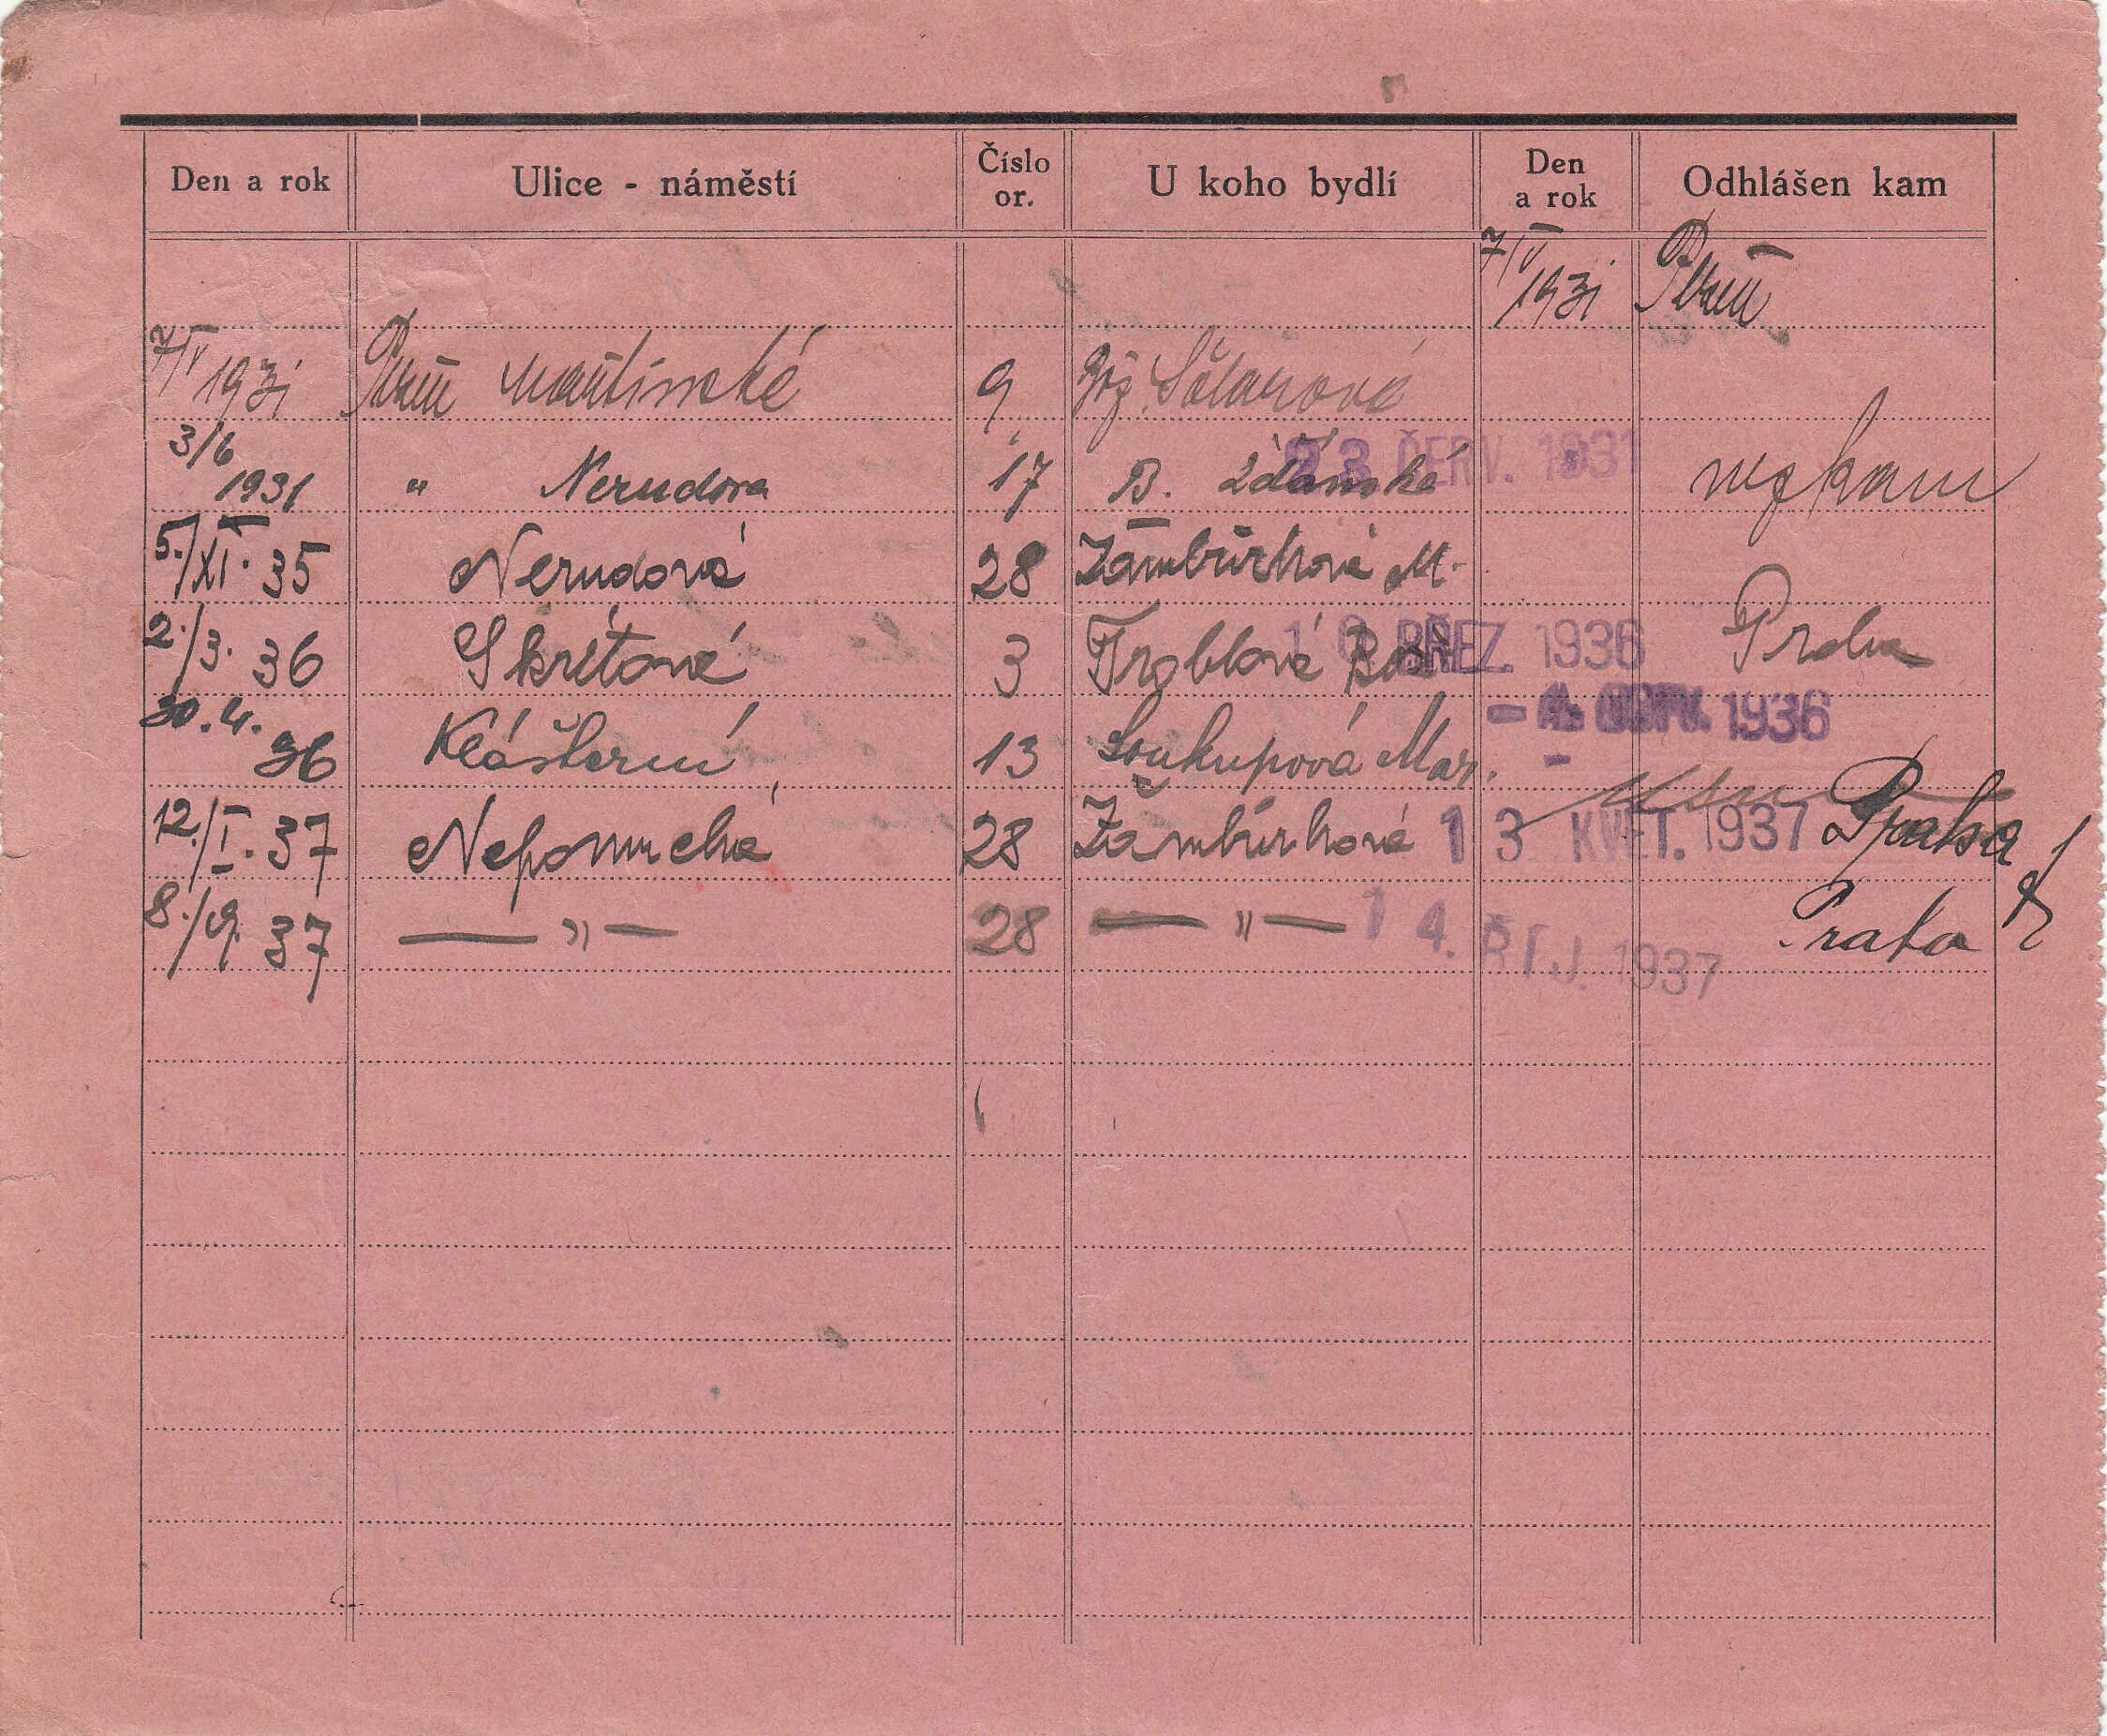 Den a rok Ulice - náměstí Číslo or. U koho bydlí Den a rok Odhlášen kam
7/V 1931 Plzeň
7/V 1931 Plzeň 9
3/6 1931 " Nerudova 17 B. Žďánská 23 ČERV. 1931
5./XI. 35 Nerudova 28 Žambůrková M.
2./3. 36 Skrétova 3 BŘEZ. 1936 Praha
30.4. 36 Klášterní 13 Soukupová Mar. 1936
12./I. 37 Nepomucká 28 Žambůrková 13 KVĚT. 1937 Praha
8./9. 37 — " — 28 — " — 14. ŘÍJ. 1937 Praha